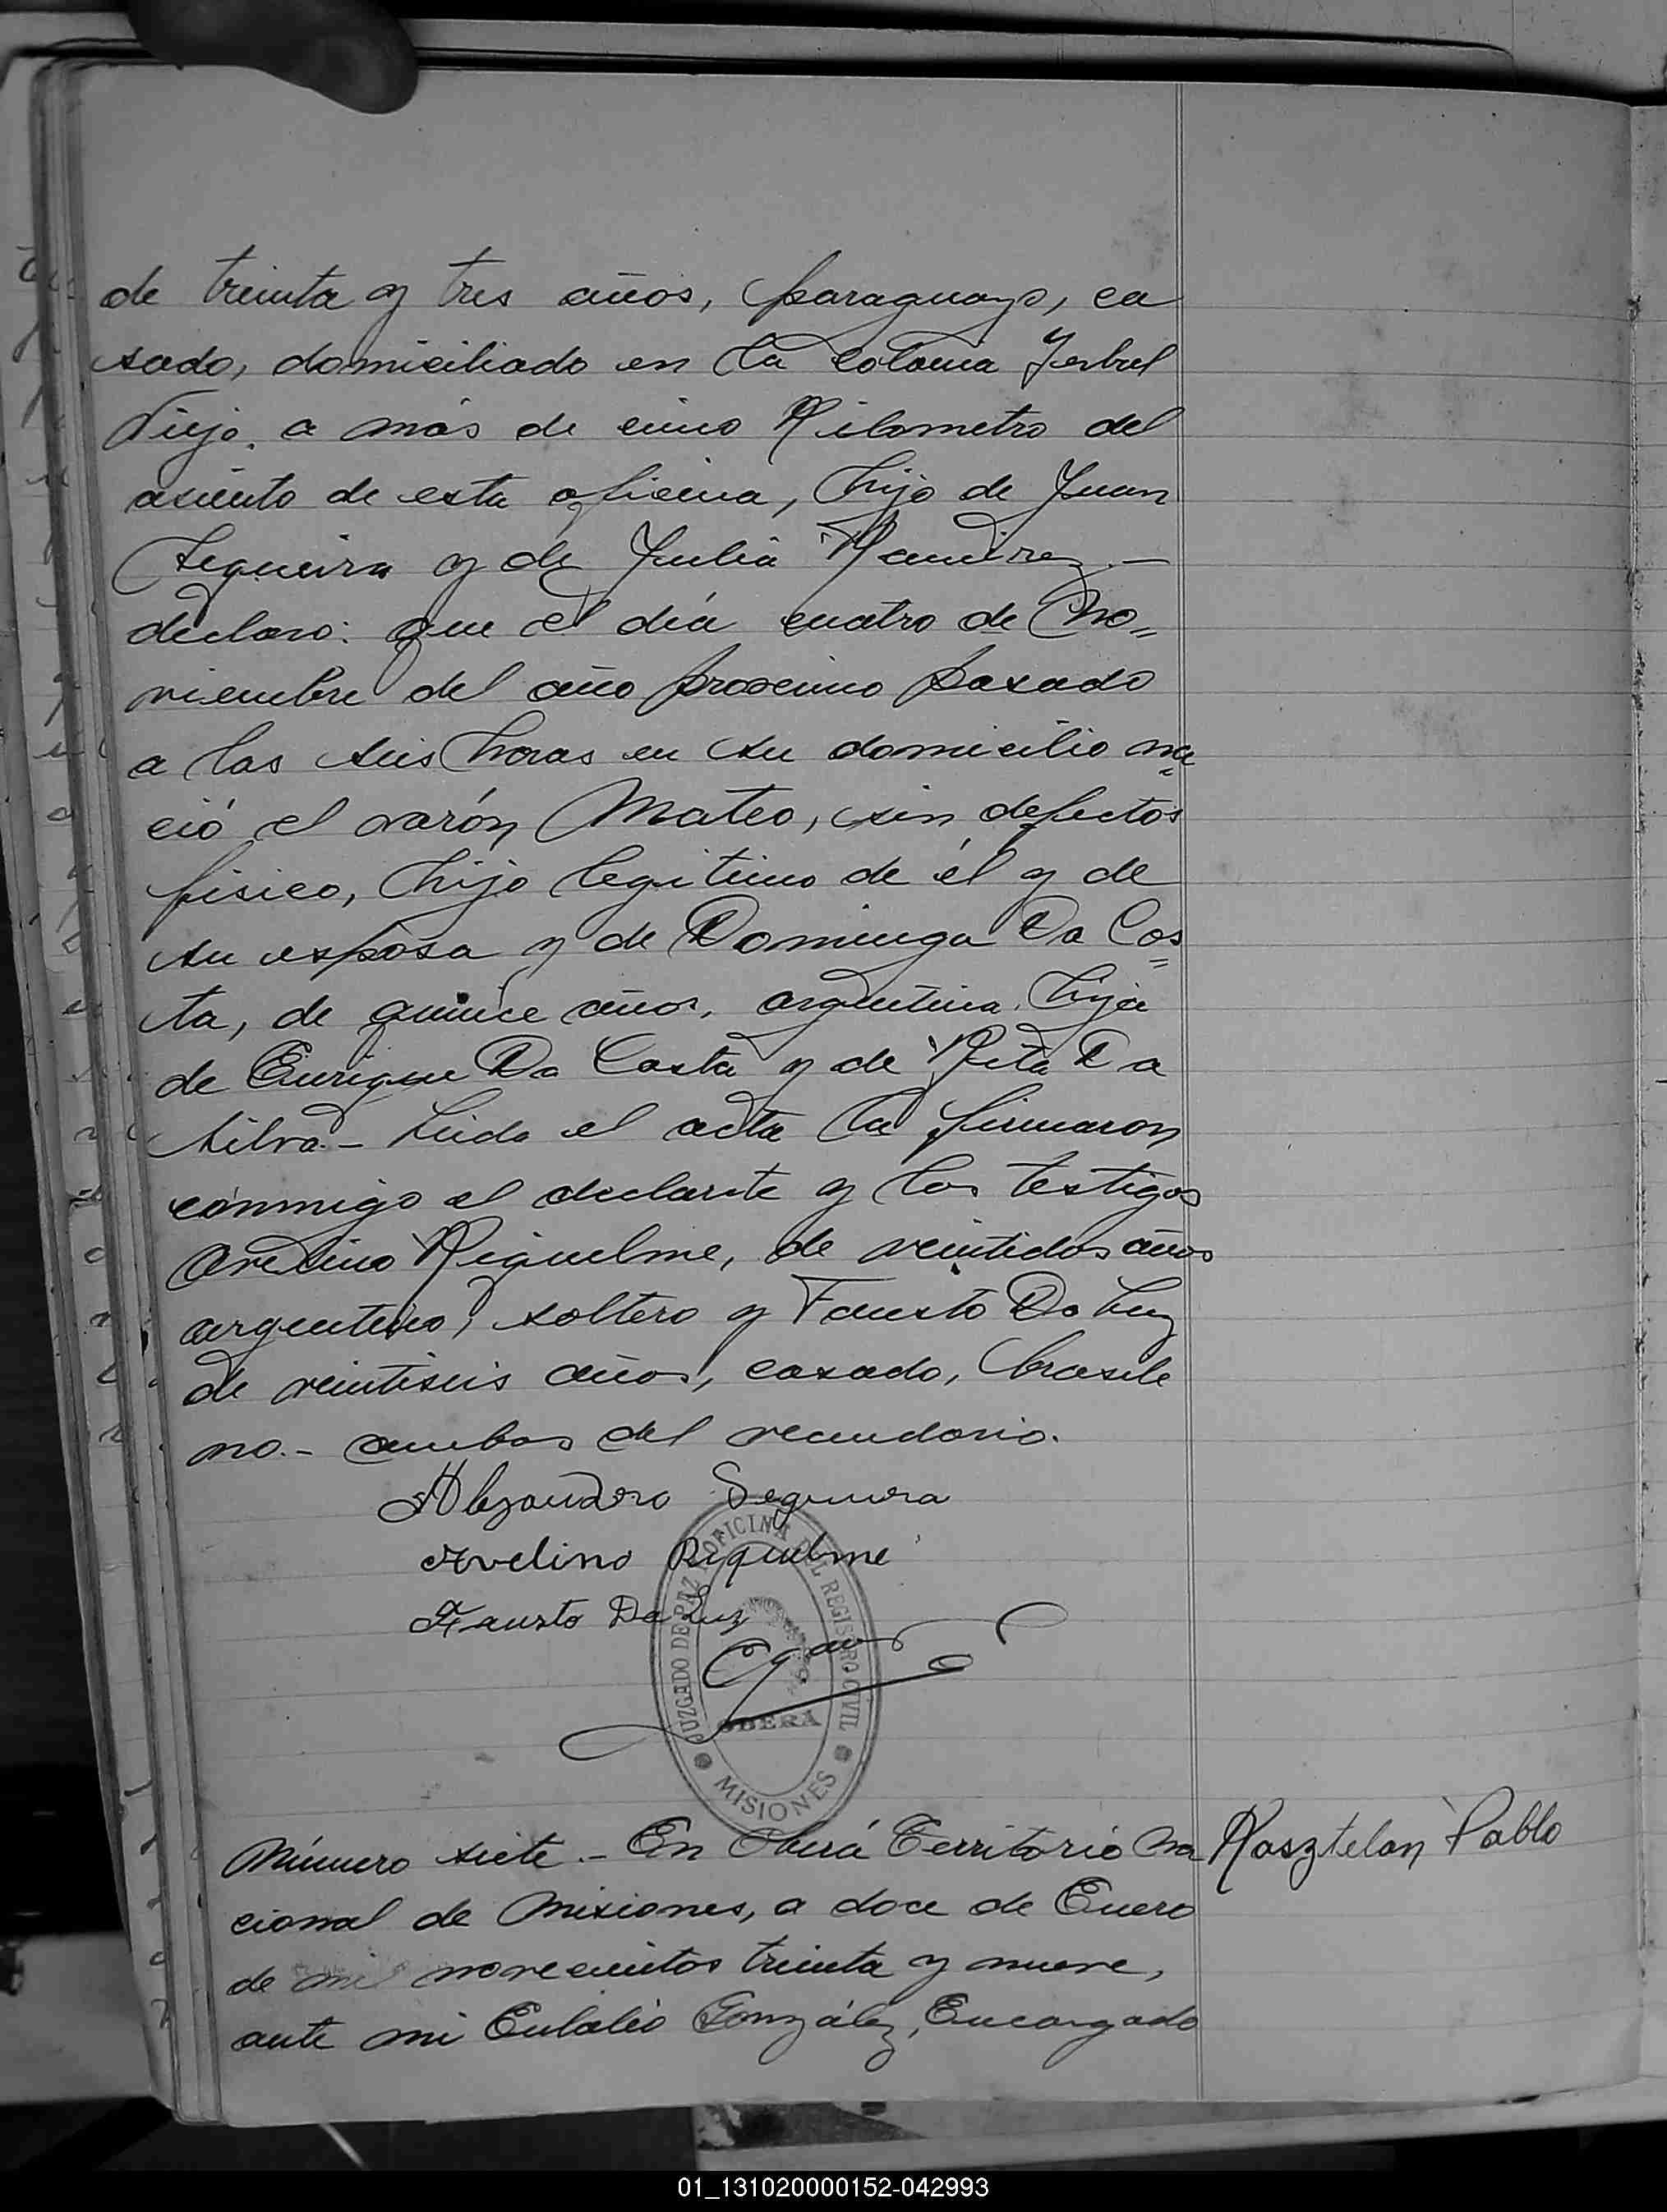 de treinta y tres años, paraguayo, ca
sado, domiciliado en la colonia Yerbal
Viejo, a más de cinco Kilometro del
asiento de esta oficina, hijo de Juan
Sequeira y de Julia Ramirez.—
declaro: que el día cuatro de No=
viembre del año proximo pasado
a las seis horas en su domicilio na=
ció el varón Mateo, sin defectos
fisico, hijo legitimo de él y de
su esposa y de Dominga Da Cos=
ta, de quince años, argentina, hija
de Enrique Da Costa y de Rita Da
Silva.- Leida el acta la firmaron
conmigo el declarante y los testigos
Avelino Riquelme, de veintidos años
argentino, soltero y Fausto Da Luz
de veintiseis años, casado, brasile
no.- ambos del vecindario.
Alejandro Sequeira
Avelino Riquelme
Fausto Da Luz
JUZGADO DE PAZ Y OFICINA DEL REGISTRO CIVIL
OBERA
MISIONES
Número siete.- En Oberá Territorio Na
Kasztelan Pablo
cional de Misiones, a doce de Enero
de mil novecientos treinta y nueve,
ante mi Eulalio González, Encargado
01_131020000152-042993